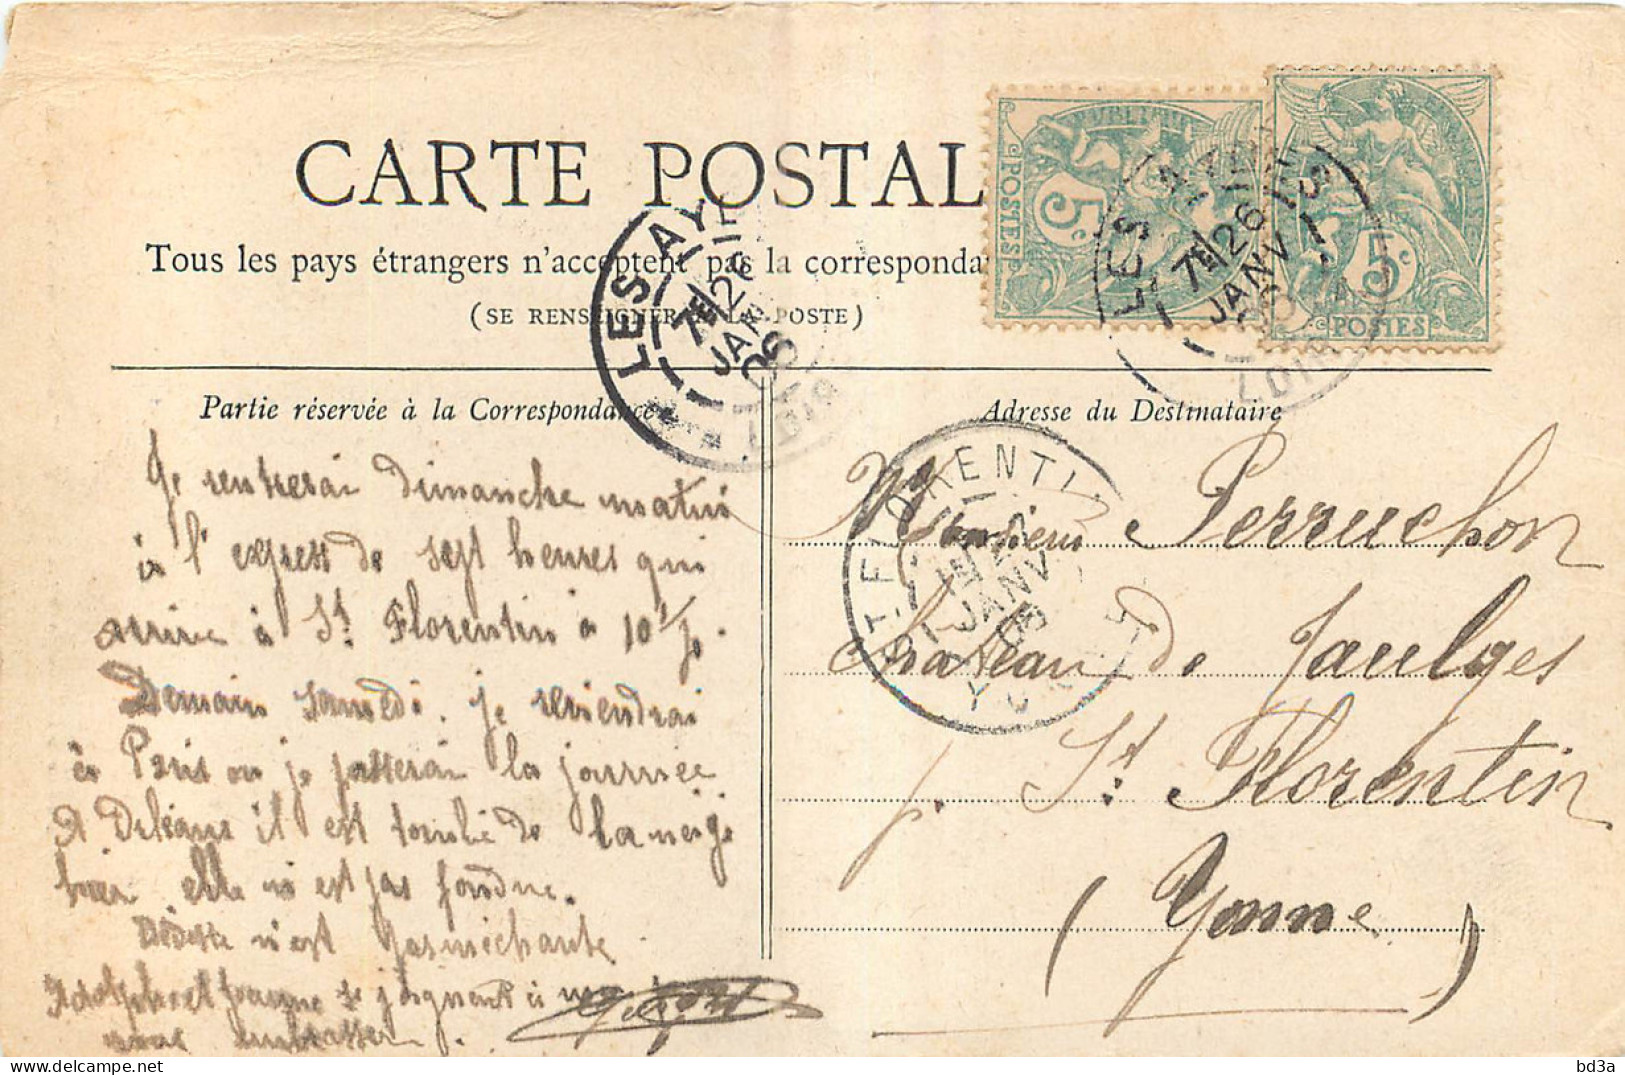 CARTE POSTALE
Tous les pays étrangers n'acceptent pas la corresponda
(SE RENSEIGNER A LA POSTE)
Partie réservée à la Correspondance
Je rentrerai dimanche matin
à l'express de sept heures qui
arrive à St Florentin à 10h
Demain samedi. je reviendrai
à Paris ou je passerai la journée
A Orléans il est tombé de la neige
hier elle n'est pas fondue.
n'est pas méchante
Adolphe et Jeanne se joignent à moi
vous embrasser.
Adresse du Destinataire
Monsieur Perruchon
Château de Jaulges
p. St Florentin
(Yonne)
RÉPUBLIQUE
POSTES
5c
5c
POSTES
LES AY
7E 26
JANV
06
LOIR
LES AY
7E 26
JANV
LOIR
ST-FLORENTIN
JANV
06
YONNE
bd3a